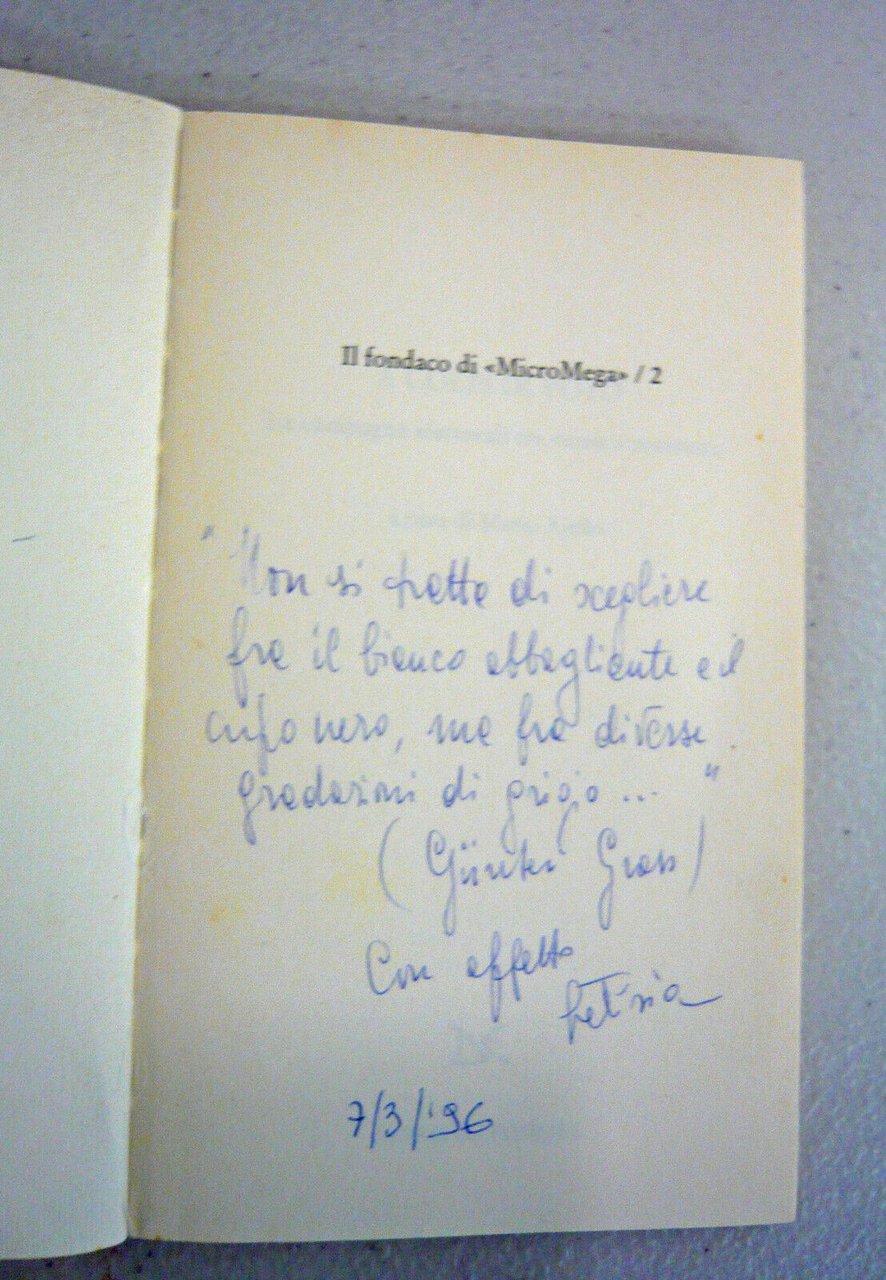 Il fondaco di «MicroMega» / 2
" Non si tratta di scegliere
fra il bianco abbagliante e il
cupo nero, ma fra diverse
gradazioni di grigio ... "
(Günter Grass)
Con affetto
Letizia
7/3/'96